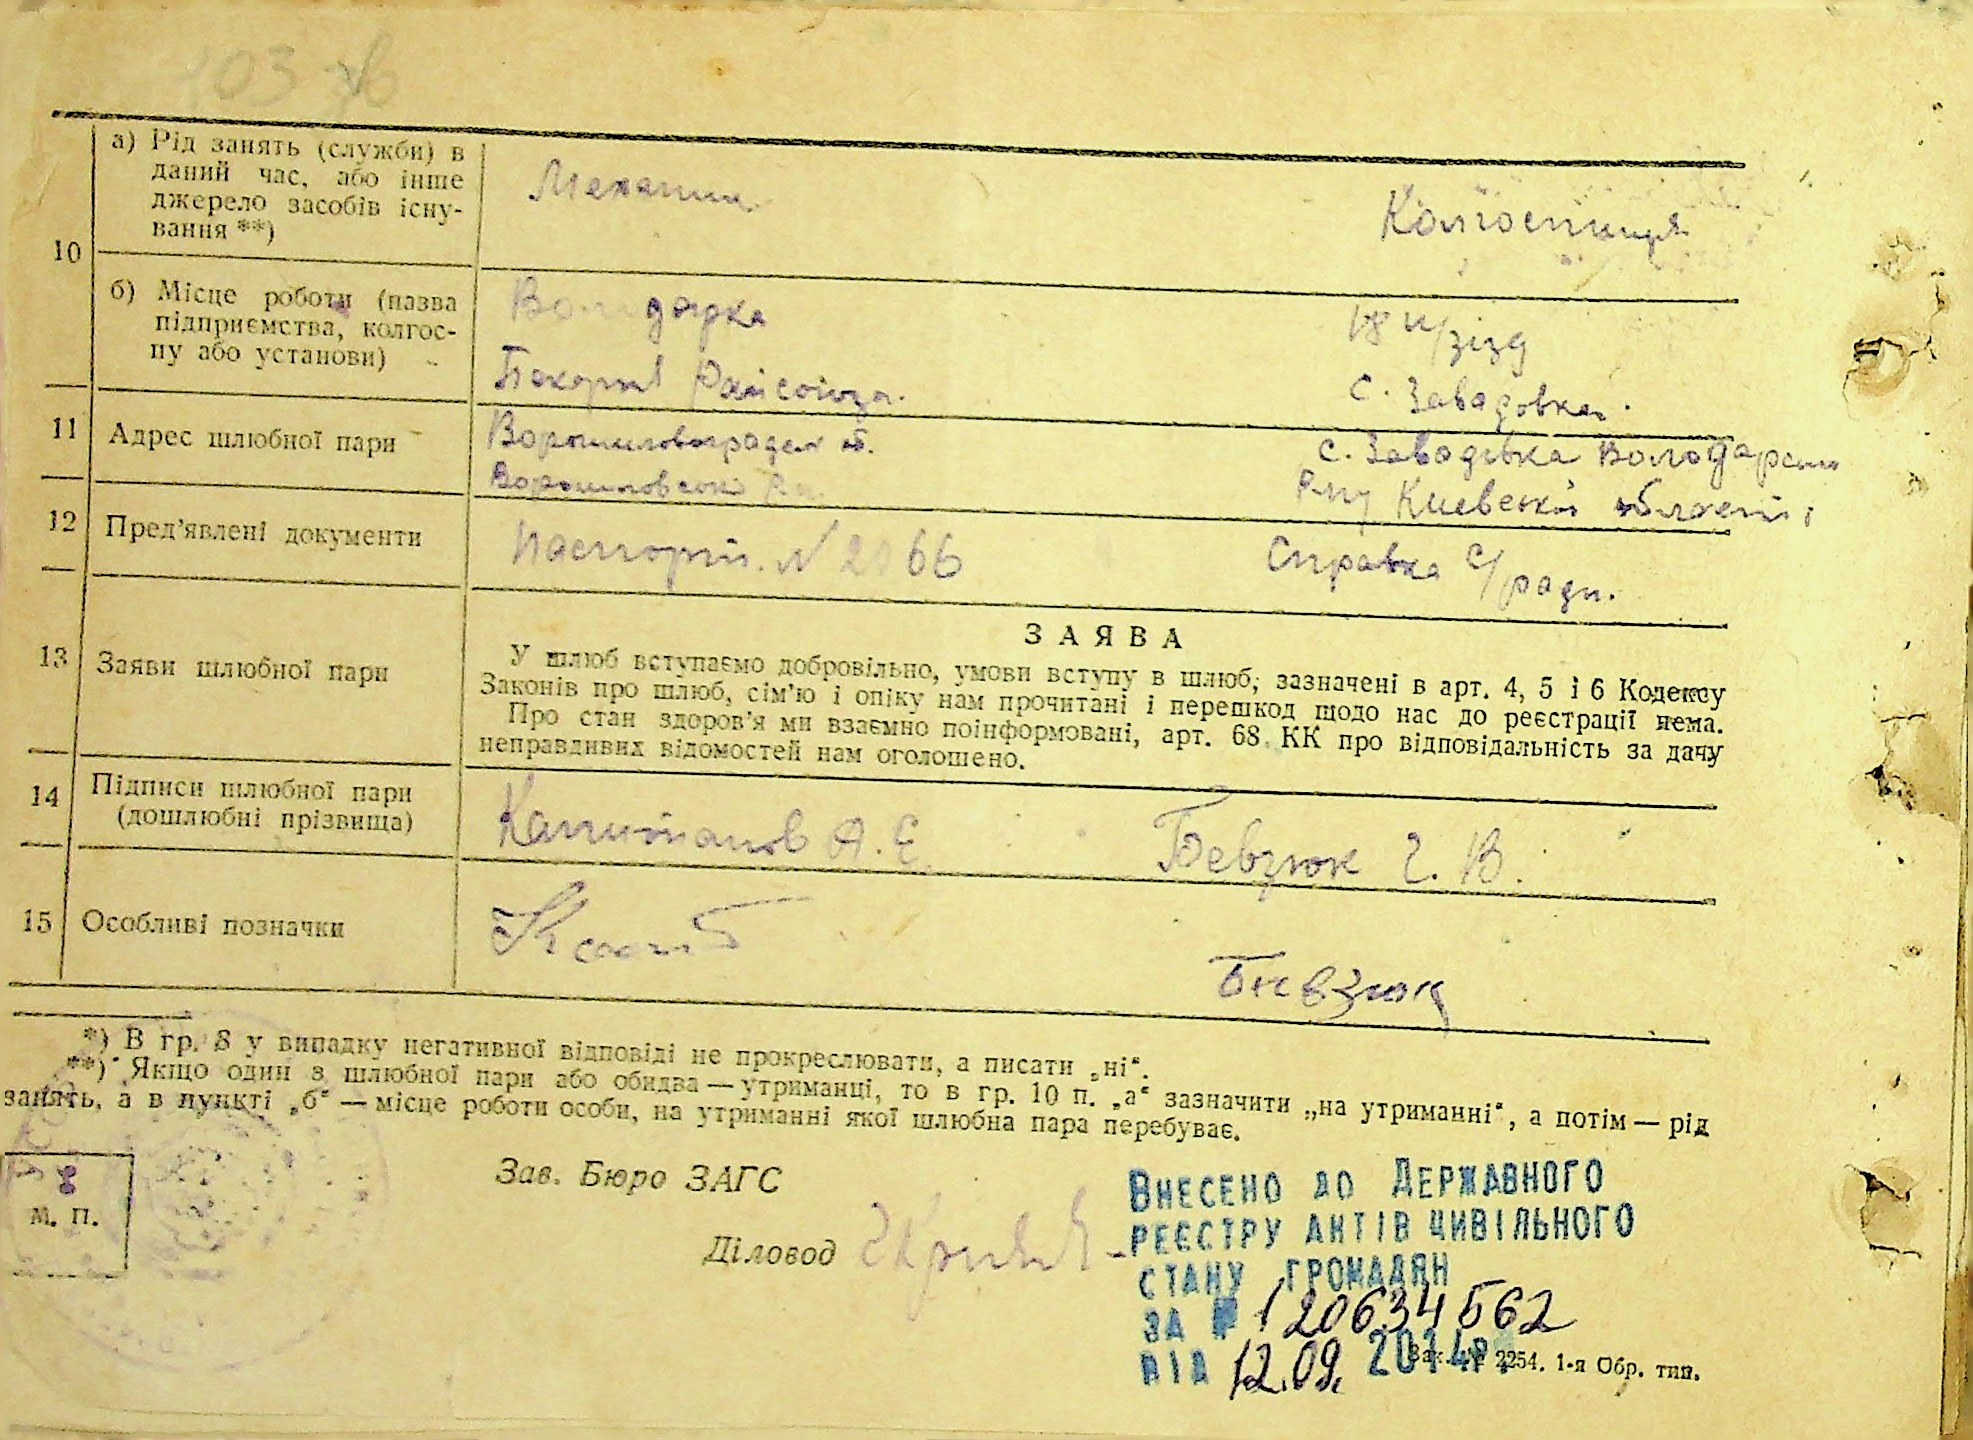 103 зв
10
а) Рід занять (служби) в
даний час, або інше
джерело засобів існу-
вання **)
Механик
Колгоспниця
б) Місце роботи (назва
підприємства, колгос-
пу або установи)
Володарка
Пекарня Райсоюза.
с. Завадовка.
11
Адрес шлюбної пари
Ворошиловоградск об.
Ворошиловский
с. Завадівка Володарськ
р-ну Киевской області
12
Пред’явлені документи
Паспорт. N 2066
Справка с/ради.
13
Заяви шлюбної пари
ЗАЯВА
У шлюб вступаємо добровільно, умови вступу в шлюб, зазначені в арт. 4, 5 і 6 Кодексу
Законів про шлюб, сім’ю і опіку нам прочитані і перешкод щодо нас до реєстрації нема.
Про стан здоров’я ми взаємно поінформовані, арт. 68 КК про відповідальність за дачу
неправдивих відомостей нам оголошено.
14
Підписи шлюбної пари
(дошлюбні прізвища)
А. Е.
Бевзюк Г. В.
15
Особливі позначки
Бевзюк
*) В гр. 8 у випадку негативної відповіді не прокреслювати, а писати „ні“.
**) Якщо один з шлюбної пари або обидва — утриманці, то в гр. 10 п. „а“ зазначити „на утриманні“, а потім — рід
занять, а в пункті „б“ — місце роботи особи, на утриманні якої шлюбна пара перебуває.
М. П.
Зав. Бюро ЗАГС
Діловод
Внесено до Державного
реєстру актів цивільного
стану громадян
за № 120634562
від 12.09. 2014р.
Зак. № 2254. 1-я Обр. тип.